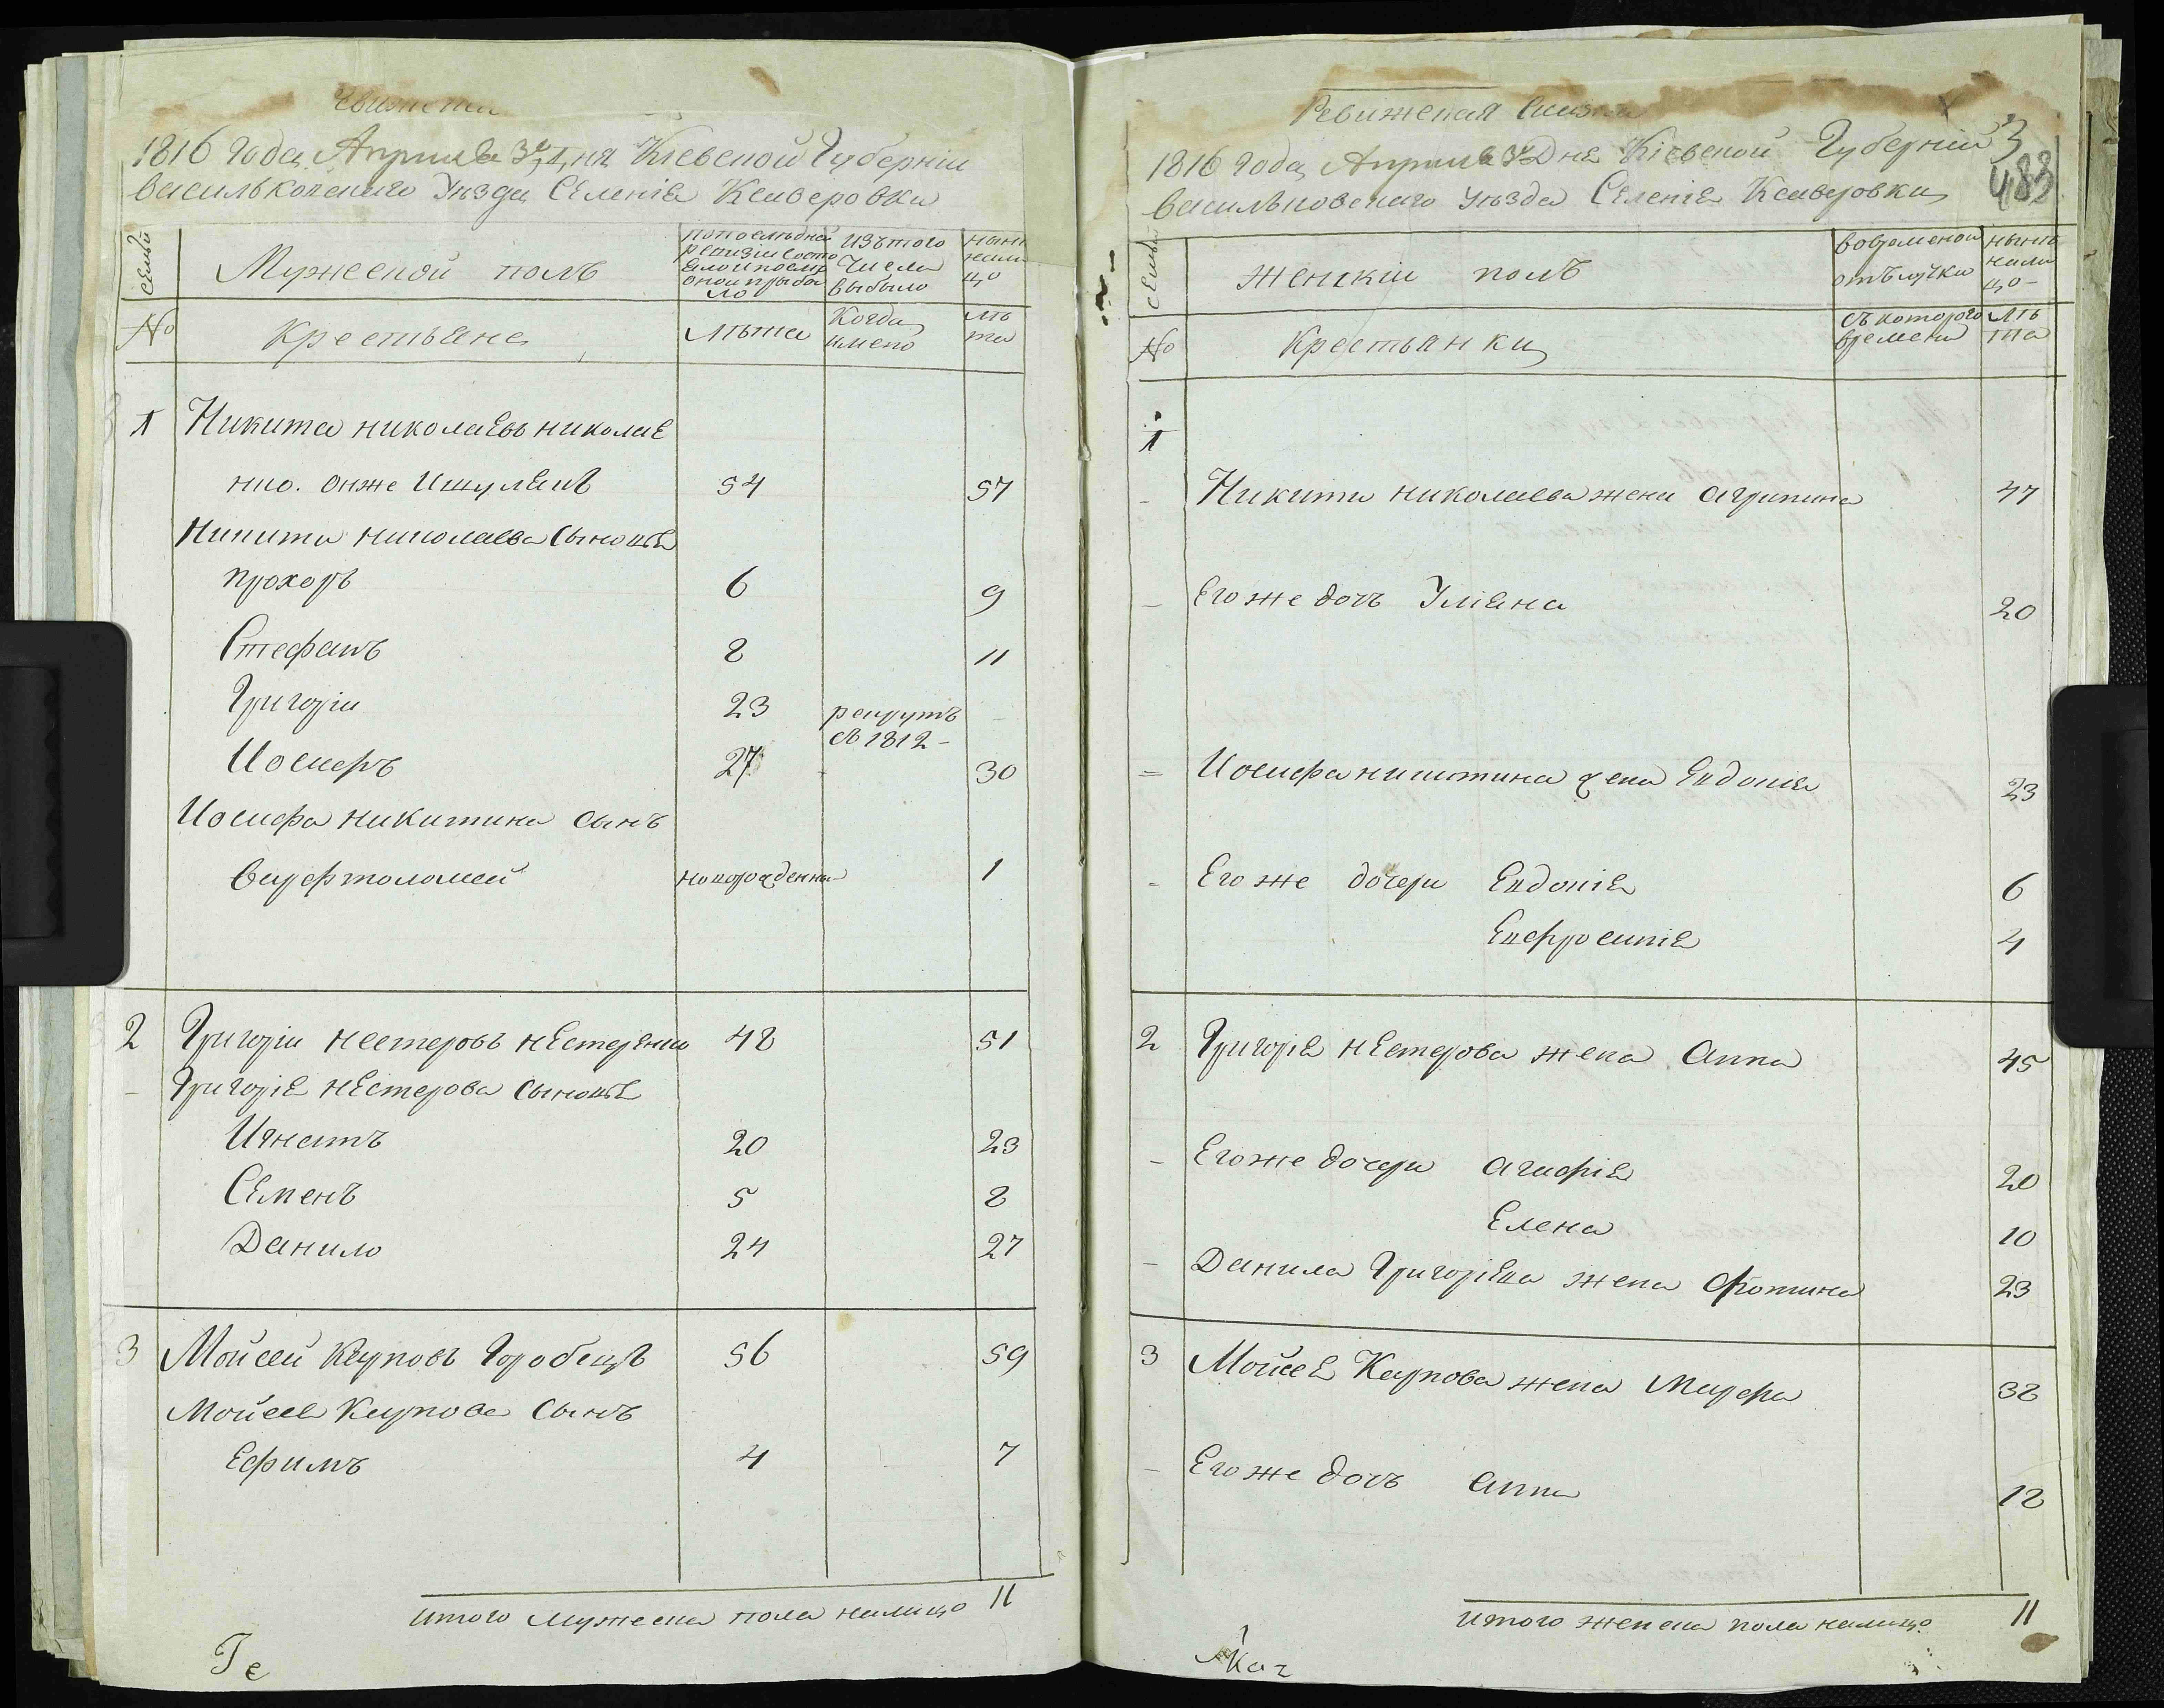 1816 года Априля 3го дня Кіевской Губерніи
васильковскаго Уезда Селенія Ксаверовки
семьи
Мужеской полъ
попоследней ревизіи состояло и после оной прибыло
изътого числа выбыло
ныне налицо
№
Крестьяне
лета
Когда имено
лета
1 Никита николаевъ николае
нко. онже Ишуляпъ 54 57
Никиты николаева сыновья
прохоръ 6 9
Стефанъ 8 11
Григорій 23 рекрутъ
съ 1812-
Иосифъ 27 30
Иосифа никитина сынъ
варфтоломей новорожденны 1
2 Григорій нестеровъ нестеренко 48 51
Григорія нестерова сыновья
Игнатъ 20 23
Семенъ 5 8
Данило 24 27
3 Мойсей Карповъ Горобецъ 56 59
Мойсея Карпова сынъ
Ефимъ 4 7
итого мужеска пола налицо 11
Ревижская Сказка
3
483
1816 года Априля 3го Дня Кіевской Губерній
васильковскаго уезда Селенія Ксаверовки
семьи
женскій полъ
вовременой отълучки
ныне налицо-
№
Крестьянки
съкоторого времени
лета
1
Никиты николаева жена агрипина 47
Егоже дочь Уліяна 20
Иосифа никитина жена Евдокія 23
Егоже дочери Евдокія 6
Евфросинія 4
2 Григорія нестерова жена Анна 45
Егоже дочери агафія 20
Елена 10
Данила Григоріева жена Фотина 23
3 Мойсея Карпова жена Марфа 38
Егоже дочь анна 12
итого женска пола налицо 11